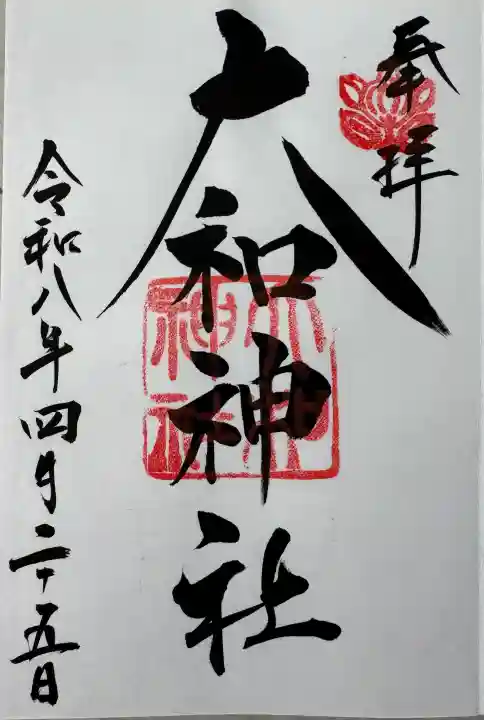 奉拝
大和神社
令和八年四月二十五日